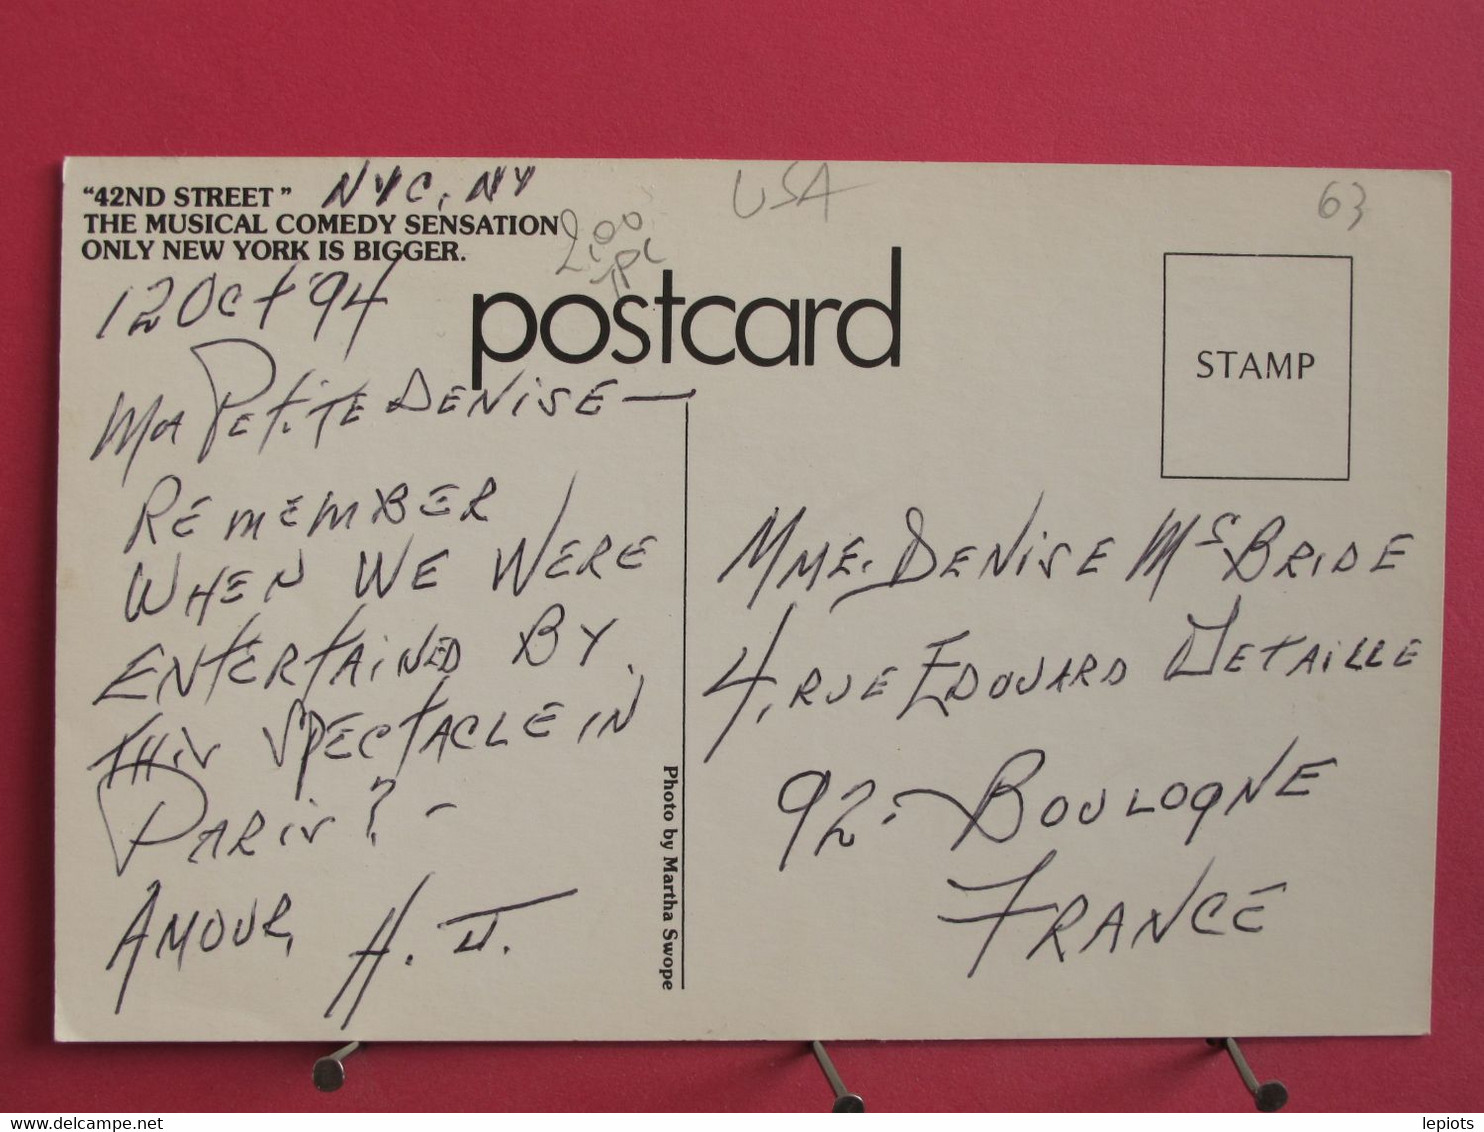 "42ND STREET" NYC, NY
THE MUSICAL COMEDY SENSATION
ONLY NEW YORK IS BIGGER.
12 Oct '94
MA PETITE DENISE —
REMEMBER
WHEN WE WERE
ENTERTAINED BY
THIS SPECTACLE IN
PARIS? -
AMOUR,
H. J.
USA
2,00
63
postcard
STAMP
Photo by Martha Swope
MME. DENISE McBRIDE
4, RUE EDOUARD DETAILLE
92 - BOULOGNE
FRANCE
delcampe.net
lepiots